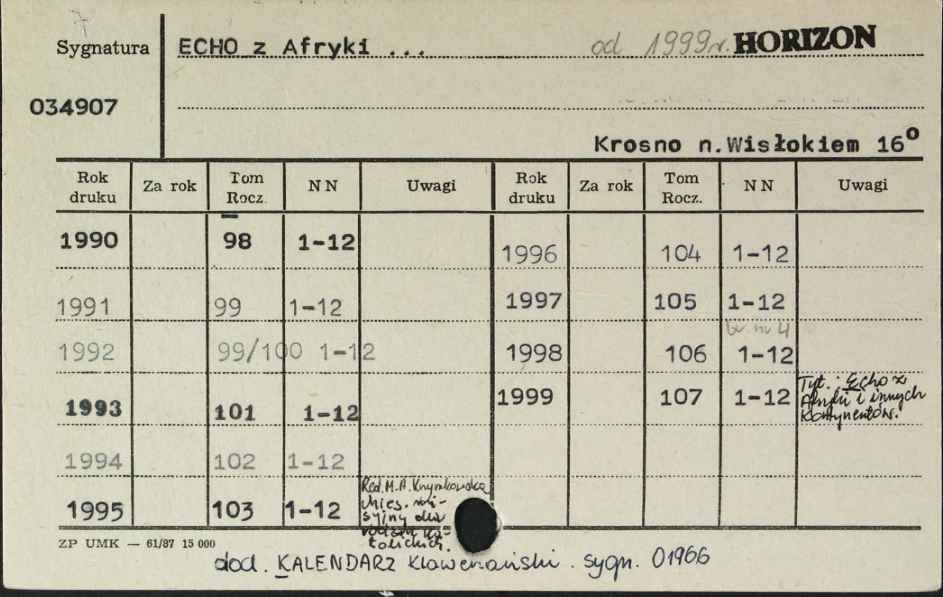 7
Sygnatura ECHO z Afryki ... od 1999 r. HORIZON
034907
Krosno n.Wisłokiem 16°
Rok druku Za rok Tom Rocz. NN Uwagi Rok druku Za rok Tom Rocz. NN Uwagi
1990 98 1-12 1996 104 1-12
1991 99 1-12 1997 105 1-12
br. nr 4
1992 99/100 1-12 1998 106 1-12
1993 101 1-12 1999 107 1-12 Tyt.: Echo z
Afryki i innych
kontynentów.
1994 102 1-12
1995 103 1-12 Red. M.A.
Mies. mi-
syjny dla
rodzin ka-
tolickich.
ZP UMK — 61/87 15 000
dod. KALENDARZ Klaweriański. sygn. 01966